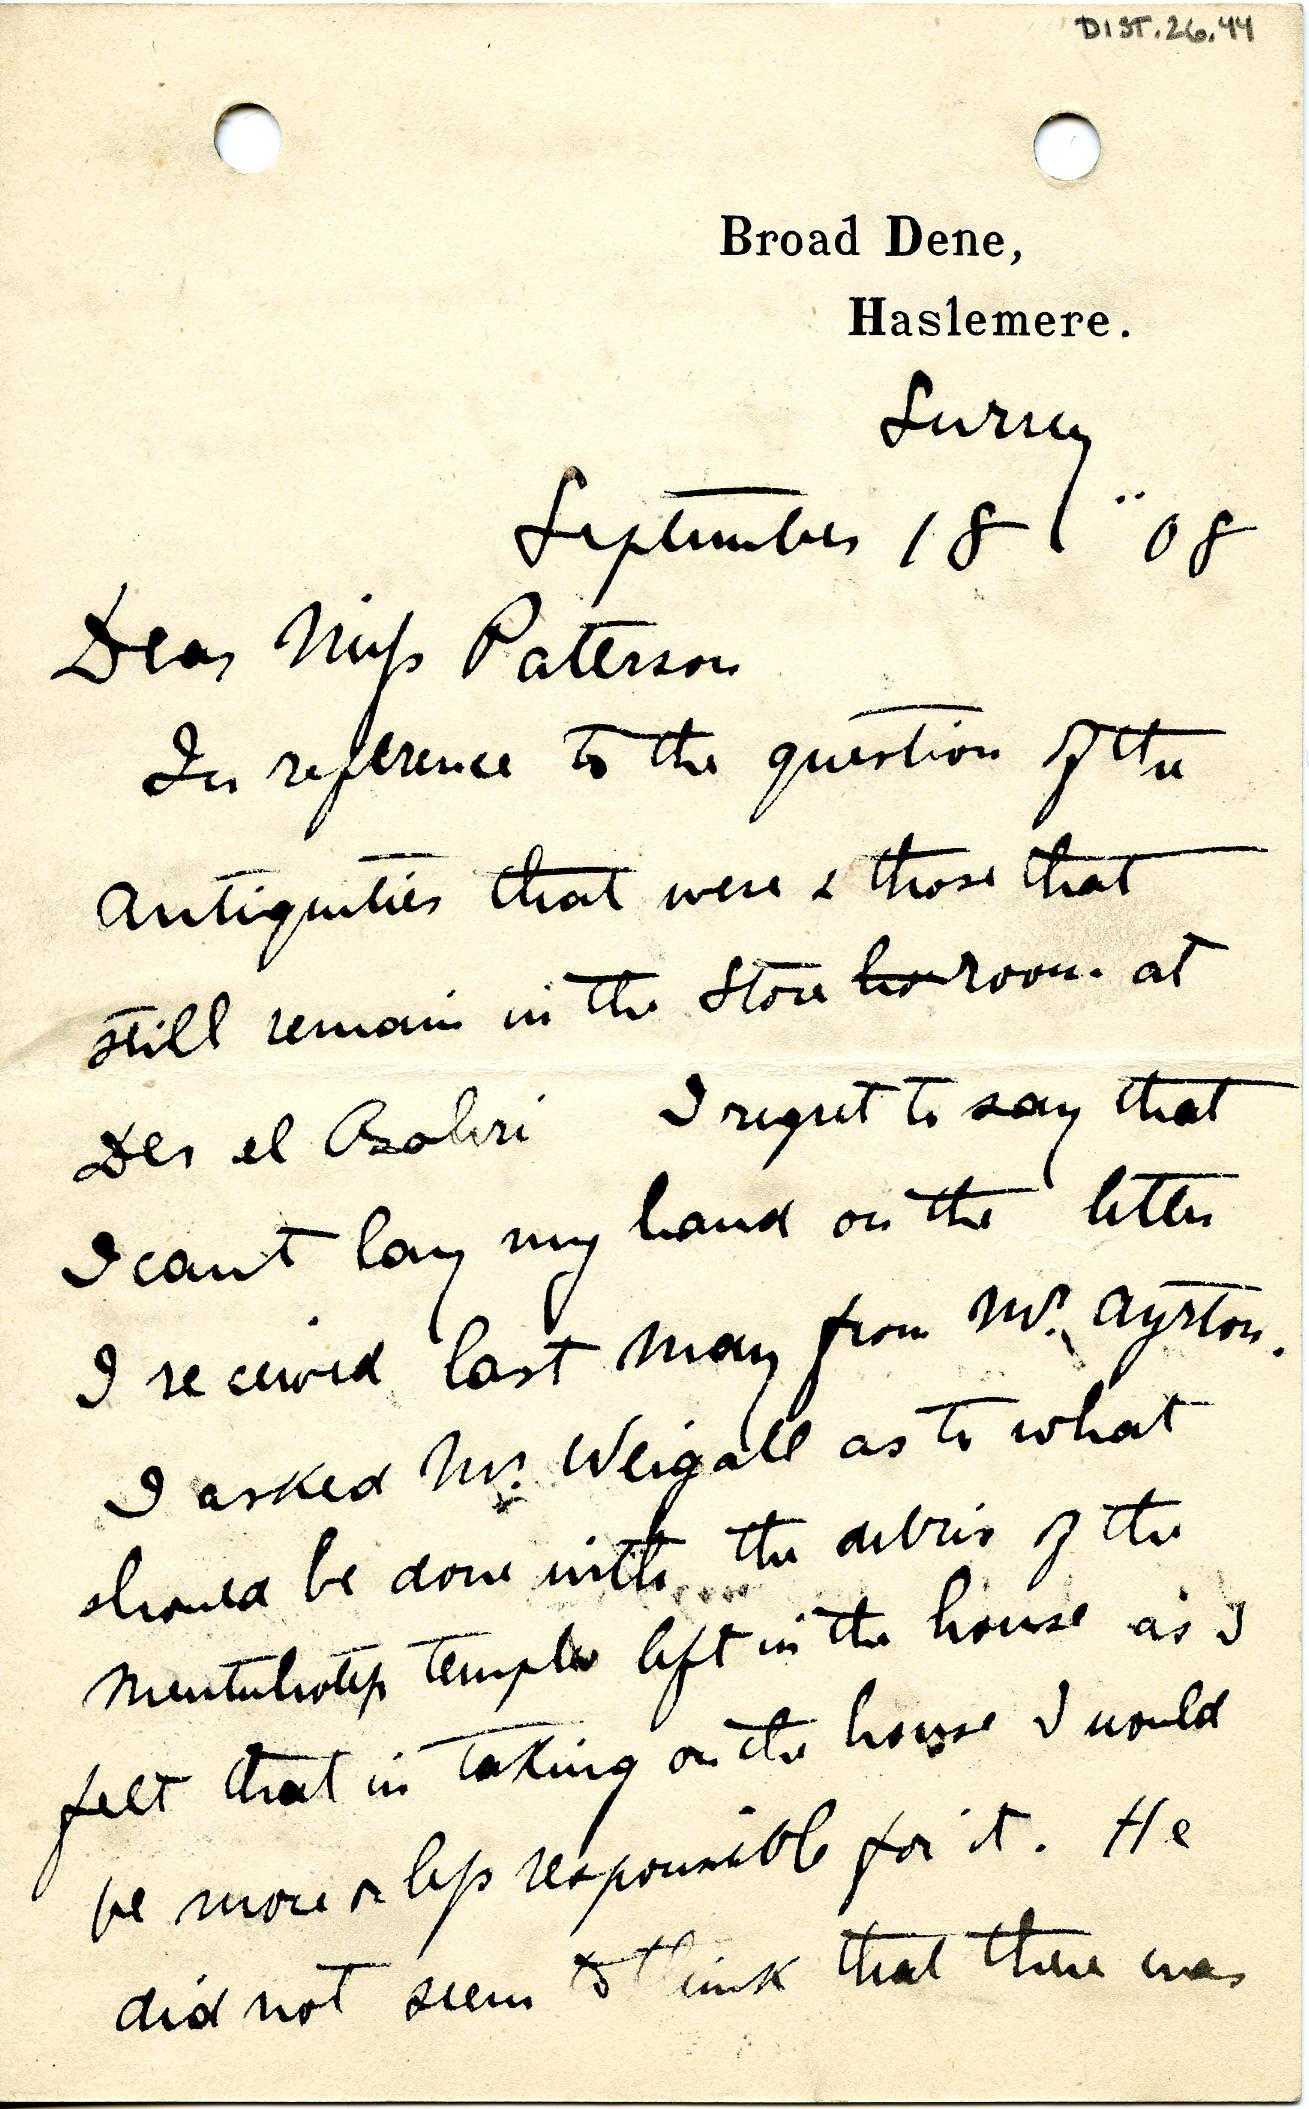 DIST.26.44
Broad Dene,
Haslemere.
Surrey
September 18 " 08
Dear Miss Paterson
In reference to the question of the
Antiquities that were & those that
still remain in the Store ho room at
Der el Bahri I regret to say that
I cant lay my hand on the letter
I received last May from Mr. Ayrton.
I asked Mr. Weigall as to what
should be done with the debris of the
Mentuhotep temple left in the house as I
felt that in taking on the house I would
be more or less responsible for it. He
did not seem to think that there was